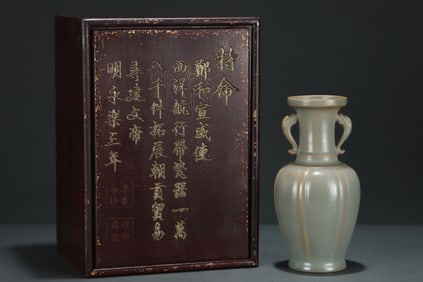 特命
鄭和宣威使
西洋航行帶瓷器一萬
八千件拓展朝貢貿易
尋建文帝
明永樂三年